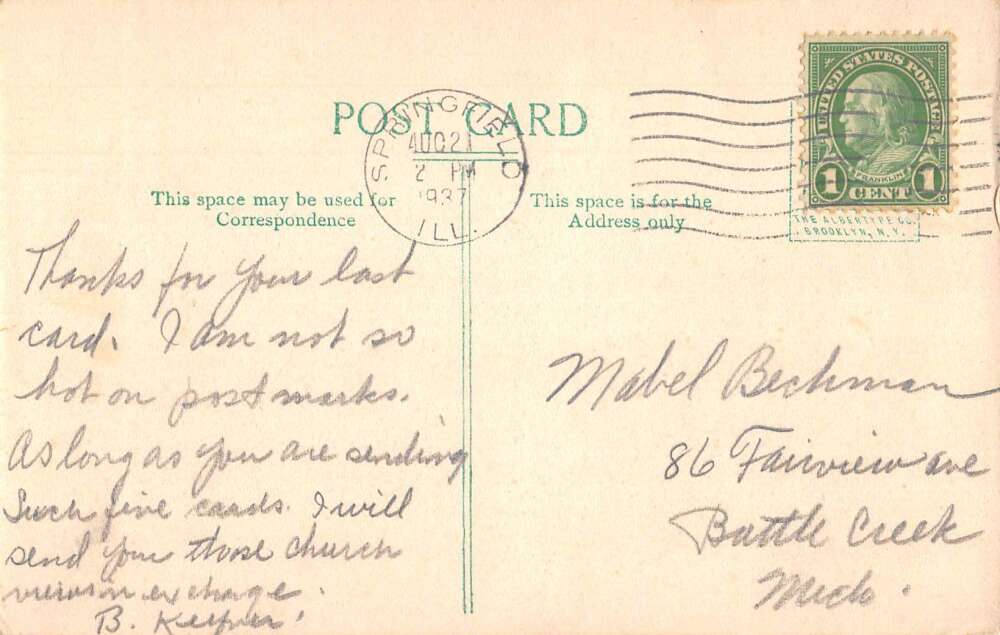 POST CARD
SPRINGFIELD
AUG 21
2 PM
1937
ILL.
UNITED STATES POSTAGE
FRANKLIN
1 CENT 1
THE ALBERTYPE CO.
BROOKLYN, N.Y.
This space may be used for
Correspondence
This space is for the
Address only
Thanks for your last
card. I am not so
hot on post marks.
As long as you are sending
Such fine cards. I will
send you those church
views in exchange.
B.
Mabel Bechman
86 Fairview ave
Battle Creek
Mich.